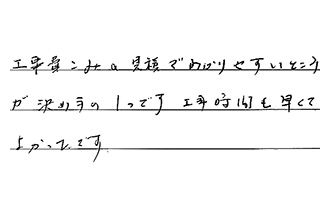 工事費こみの見積でわかりやすいところ
が決め手の1つです 工事時間も早くて
よかったです